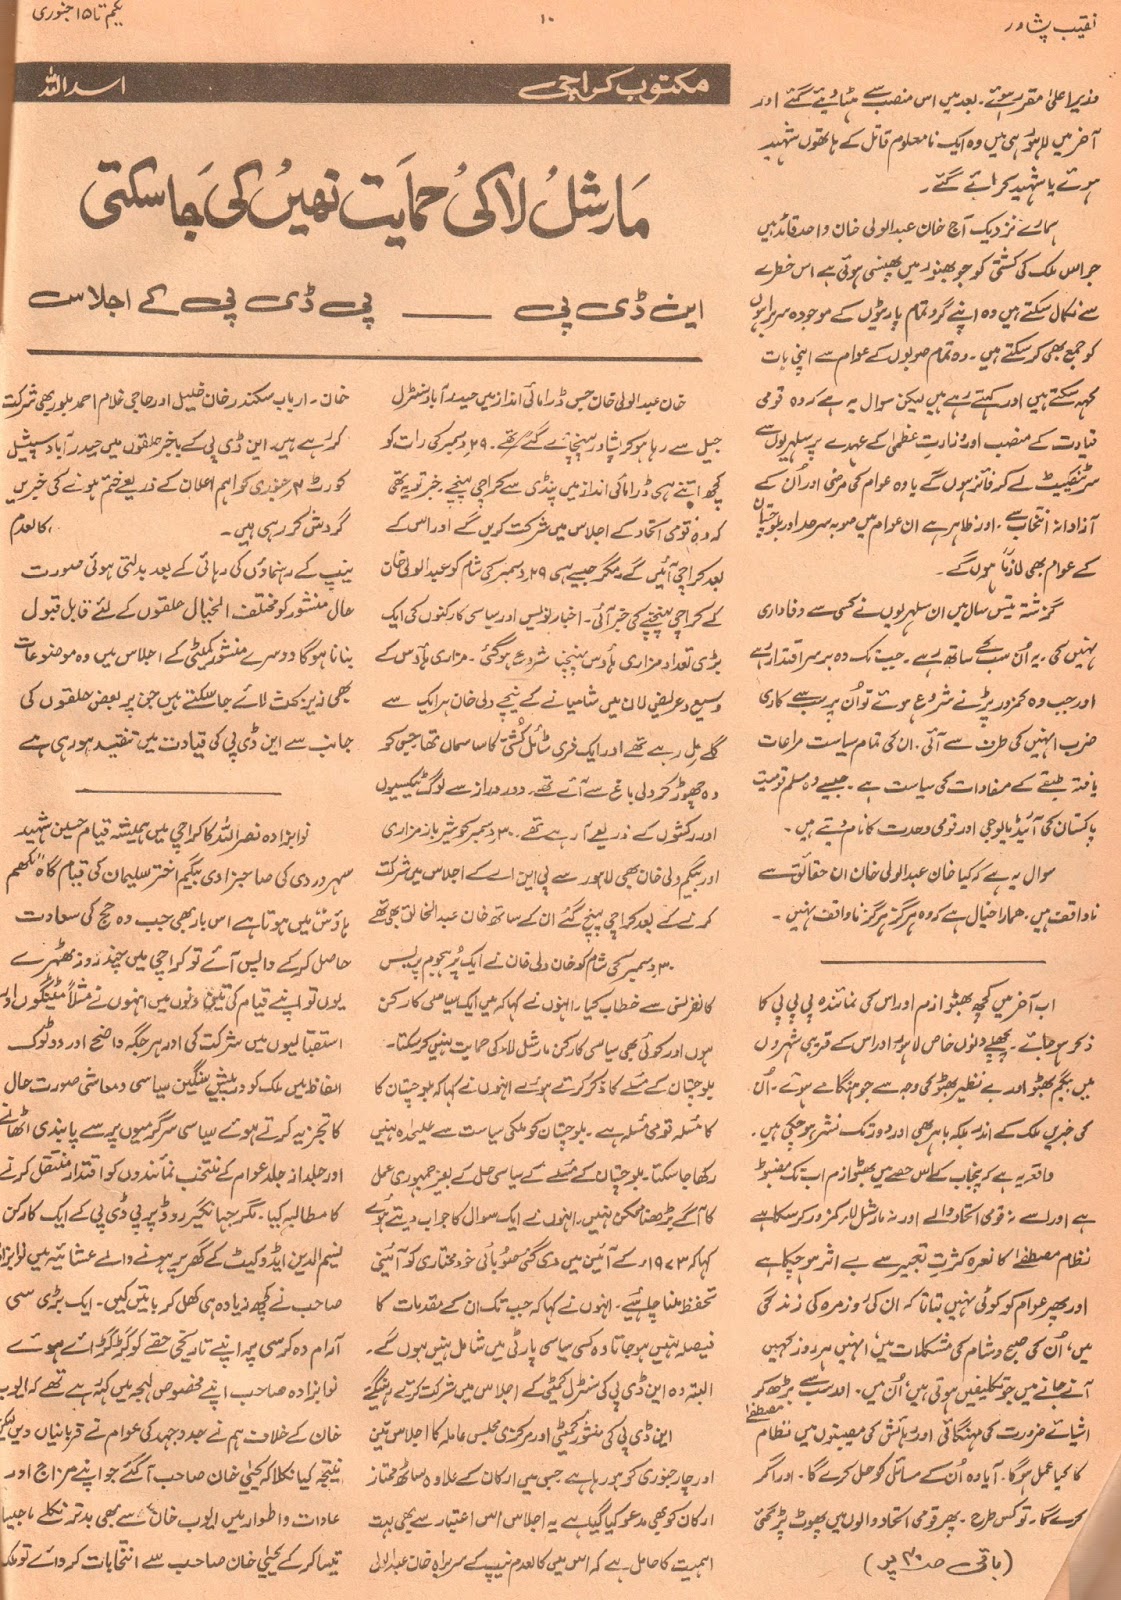 نقیب پشاور
۱۰
یکم تا ۱۵ جنوری
وزیراعلیٰ مقرر ہوئے۔ بعد میں اس منصب سے ہٹا دیئے گئے اور
آخر میں لاہور ہی میں وہ ایک نامعلوم قاتل کے ہاتھوں شہید
ہوئے یا شہید کرائے گئے۔
ہمارے نزدیک آج خان عبدالولی خان واحد قائد ہیں
جو اس ملک کی کشتی کو جو بھنور میں پھنسی ہوئی ہے اس خطرے
سے نکال سکتے ہیں وہ اپنے گرد تمام پارٹیوں کے موجودہ سربراہوں
کو جمع بھی کر سکتے ہیں۔ وہ تمام صوبوں کے عوام سے اپنی بات
کہہ سکتے ہیں اور کہتے رہے ہیں لیکن سوال یہ ہے کہ وہ قومی
قیادت کے منصب اور وزارت عظمیٰ کے عہدے پر سلہریوں سے
سرٹیفکیٹ لے کر فائز ہوں گے یا وہ عوام کی مرضی اور اُن کے
آزادانہ انتخاب سے۔ اور ظاہر ہے ان عوام میں صوبہ سرحد اور بلوچستان
کے عوام بھی لازماً ہوں گے۔
گزشتہ تیس سال میں ان سلہریوں نے کسی سے وفاداری
نہیں کی۔ یہ اُن سب کے ساتھ رہے۔ جب تک وہ برسر اقتدار رہے
اور جب وہ کمزور پڑنے شروع ہوئے تو اُن پر سب سے کاری
ضرب انہیں کی طرف سے آئی۔ ان کی تمام سیاست مراعات
یافتہ طبقے کے مفادات کی سیاست ہے۔ جسے وہ مسلم قومیت
پاکستان کی آئیڈیالوجی اور قومی وحدت کا نام دیتے ہیں۔
سوال یہ ہے کہ کیا خان عبدالولی خان ان حقائق سے
ناواقف ہیں۔ ہمارا خیال ہے کہ وہ ہرگز ہرگز ناواقف نہیں۔
اب آخر میں کچھ بھٹو ازم اور اس کی نمائندہ پی پی پی کا
ذکر ہو جائے۔ پچھلے دنوں خاص لاہور اور اس کے قریبی شہروں
میں بیگم بھٹو اور بے نظیر بھٹو کی وجہ سے جو ہنگامے ہوئے۔ اُن
کی خبریں ملک کے اندر بلکہ باہر بھی اور دور تک نشر ہو چکی ہیں۔
واقعہ یہ ہے کہ پنجاب کے اس حصے میں بھٹو ازم اب تک مضبوط
ہے اور اسے نہ قومی اتحاد والے اور نہ مارشل لا کمزور کر سکا ہے
نظام مصطفےٰ کا نعرہ کثرت تعبیر سے بے اثر ہو چکا ہے
اور پھر عوام کو کوئی نہیں بتاتا کہ ان کی روزمرہ کی زندگی
میں، اُن کی صبح و شام کی مشکلات میں، انہیں ہر روز کہیں
آنے جانے میں جو تکلیفیں ہوتی ہیں، اُن میں۔ اور سب سے بڑھ کر
اشیائے ضرورت کی مہنگائی اور رہائش کی مصیبتوں میں نظام مصطفےٰ
کا کیا عمل ہو گا۔ آیا وہ اُن کے مسائل کو حل کرے گا۔ اور اگر
کرے گا۔ تو کس طرح۔ پھر قومی اتحاد والوں میں پھوٹ پڑ گئی
(باقی صـ ۳۰ پر)
مکتوب کراچی
اسد اللہ
مارشل لا کی حمایت نہیں کی جا سکتی
این ڈی پی — پی ڈی پی کے اجلاس
خان عبدالولی خان جس ڈرامائی انداز میں حیدر آباد سنٹرل
جیل سے رہا ہو کر پشاور پہنچائے گئے تھے۔ ۲۹ دسمبر کی رات کو
کچھ اتنے ہی ڈرامائی انداز میں پنڈی سے کراچی پہنچے۔ خبر تو یہ تھی
کہ وہ قومی اتحاد کے اجلاس میں شرکت کریں گے اور اس کے
بعد کراچی آئیں گے۔ مگر جیسے ہی ۲۹ دسمبر کی شام کو عبدالولی خان
کے کراچی پہنچنے کی خبر آئی۔ اخبار نویس اور سیاسی کارکنوں کی ایک
بڑی تعداد مزاری ہاؤس پہنچنا شروع ہو گئی۔ مزاری ہاؤس کے
وسیع و عریض لان میں شامیانے کے نیچے ولی خان ہر ایک سے
گلے مل رہے تھے اور ایک فری سٹائل کشتی کا سا سماں تھا جس کو
وہ چھوڑ کر ولی باغ سے آئے تھے۔ دور دراز سے لوگ ٹیکسیوں
اور رکشوں کے ذریعے آ رہے تھے۔ ۳۰ دسمبر کو شیر باز مزاری
اور بیگم ولی خان بھی لاہور سے پی این اے کے اجلاس میں شرکت
کرنے کے بعد کراچی پہنچ گئے ان کے ساتھ خان عبدالخالق بھی تھے
۳۰ دسمبر کی شام کو خان ولی خان نے ایک پُر ہجوم پریس
کانفرنس سے خطاب کیا۔ انہوں نے کہا کہ میں ایک سیاسی کارکن
ہوں اور کوئی بھی سیاسی کارکن مارشل لاء کی حمایت نہیں کر سکتا۔
بلوچستان کے مسئلے کا ذکر کرتے ہوئے انہوں نے کہا کہ بلوچستان کا
کا مسئلہ قومی مسئلہ ہے۔ بلوچستان کو ملکی سیاست سے علیحدہ نہیں
رکھا جا سکتا۔ بلوچستان کے مسئلے کے سیاسی حل کے بغیر جمہوری عمل
کا آگے بڑھنا ممکن نہیں۔ انہوں نے ایک سوال کا جواب دیتے ہوئے
کہا کہ ۱۹۷۳ء کے آئین میں دی گئی صوبائی خود مختاری کو آئینی
تحفظ ملنا چاہیئے۔ انہوں نے کہا کہ جب تک ان کے مقدمات کا
فیصلہ نہیں ہو جاتا وہ کسی سیاسی پارٹی میں شامل نہیں ہوں گے۔
البتہ وہ این ڈی پی کی سنٹرل کمیٹی کے اجلاس میں شرکت کرتے رہینگے
این ڈی پی کی منشور کمیٹی اور مرکزی مجلس عاملہ کا اجلاس تین
اور چار جنوری کو ہو رہا ہے جس میں ارکان کے علاوہ ساٹھ ممتاز
ارکان کو بھی مدعو کیا گیا ہے یہ اجلاس اس اعتبار سے بھی بہت
اہمیت کا حامل ہے کہ اس میں کالعدم نیپ کے سربراہ خان عبدالولی
خان۔ ارباب سکندر خان خلیل اور حاجی غلام احمد بلور بھی شرکت
کر رہے ہیں۔ این ڈی پی کے باخبر حلقوں میں حیدر آباد سپیشل
کورٹ ۳ جنوری کو اہم اعلان کے ذریعے ختم ہونے کی خبریں
گردش کر رہی ہیں۔ کالعدم
نیپ کے رہنماؤں کی رہائی کے بعد بدلتی ہوئی صورت
حال منشور کو مختلف الخیال حلقوں کے لئے قابل قبول
بنانا ہوگا دوسرے منشور کمیٹی کے اجلاس میں وہ موضوعات
بھی زیر بحث لائے جا سکتے ہیں جن پر بعض حلقوں کی
جانب سے این ڈی پی کی قیادت میں تنقید ہو رہی ہے
نوابزادہ نصراللہ کا کراچی میں ہمیشہ قیام حسین شہید
سہروردی کی صاحبزادی بیگم اختر سلیمان کی قیام گاہ "لکھم
ہاؤس میں ہوتا ہے اس بار بھی جب وہ حج کی سعادت
حاصل کر کے واپس آئے تو کراچی میں چند روز ٹھہرے
یوں تو اپنے قیام کی تین دنوں میں انہوں نے مثلاً میٹنگوں اور
استقبالیوں میں شرکت کی اور ہر جگہ واضح اور دو ٹوک
الفاظ میں ملک کو درپیش سنگین سیاسی و معاشی صورت حال
کا تجزیہ کرتے ہوئے سیاسی سرگرمیوں پر سے پابندی اٹھانے
اور جلد از جلد عوام کے منتخب نمائندوں کو اقتدار منتقل کرنے
کا مطالبہ کیا۔ مگر جہانگیر روڈ پر پی ڈی پی کے ایک کارکن
نسیم الدین ایڈوکیٹ کے گھر پر ہونے والے عشائیہ میں نوابزادہ
صاحب نے کچھ زیادہ ہی کھل کر باتیں کیں۔ ایک بڑی سی
آرام دہ کرسی پر اپنے تاریخی حقے کو گڑگڑاتے ہوئے
نوابزادہ صاحب اپنے مخصوص لہجہ میں کہہ رہے تھے کہ ایوب
خان کے خلاف ہم نے جدوجہد کی عوام نے قربانیاں دیں لیکن
نتیجہ کیا نکلا کہ یحییٰ خان صاحب آ گئے جو اپنے مزاج اور
عادات و اطوار میں ایوب خان سے بھی بدتر نکلے۔ جیسا
تیسا کر کے یحییٰ خان صاحب سے انتخابات کروائے تو ملک